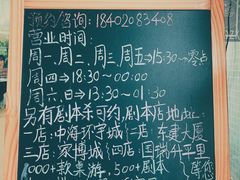 预约咨询:18402083408
营业时间:
周一.周二.周三.周五⇒15:30~零点
周四⇒18:30~00:00
周六.日⇒13:30~01:30
另有剧本杀可约,剧本店地址:
一店:中海环宇城 二店:东建大厦
三店:家博城 四店:匡瑞升平里
000+款桌游,500+剧本